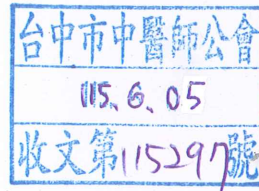 台中市中醫師公會
115.6.05
收文第115297號